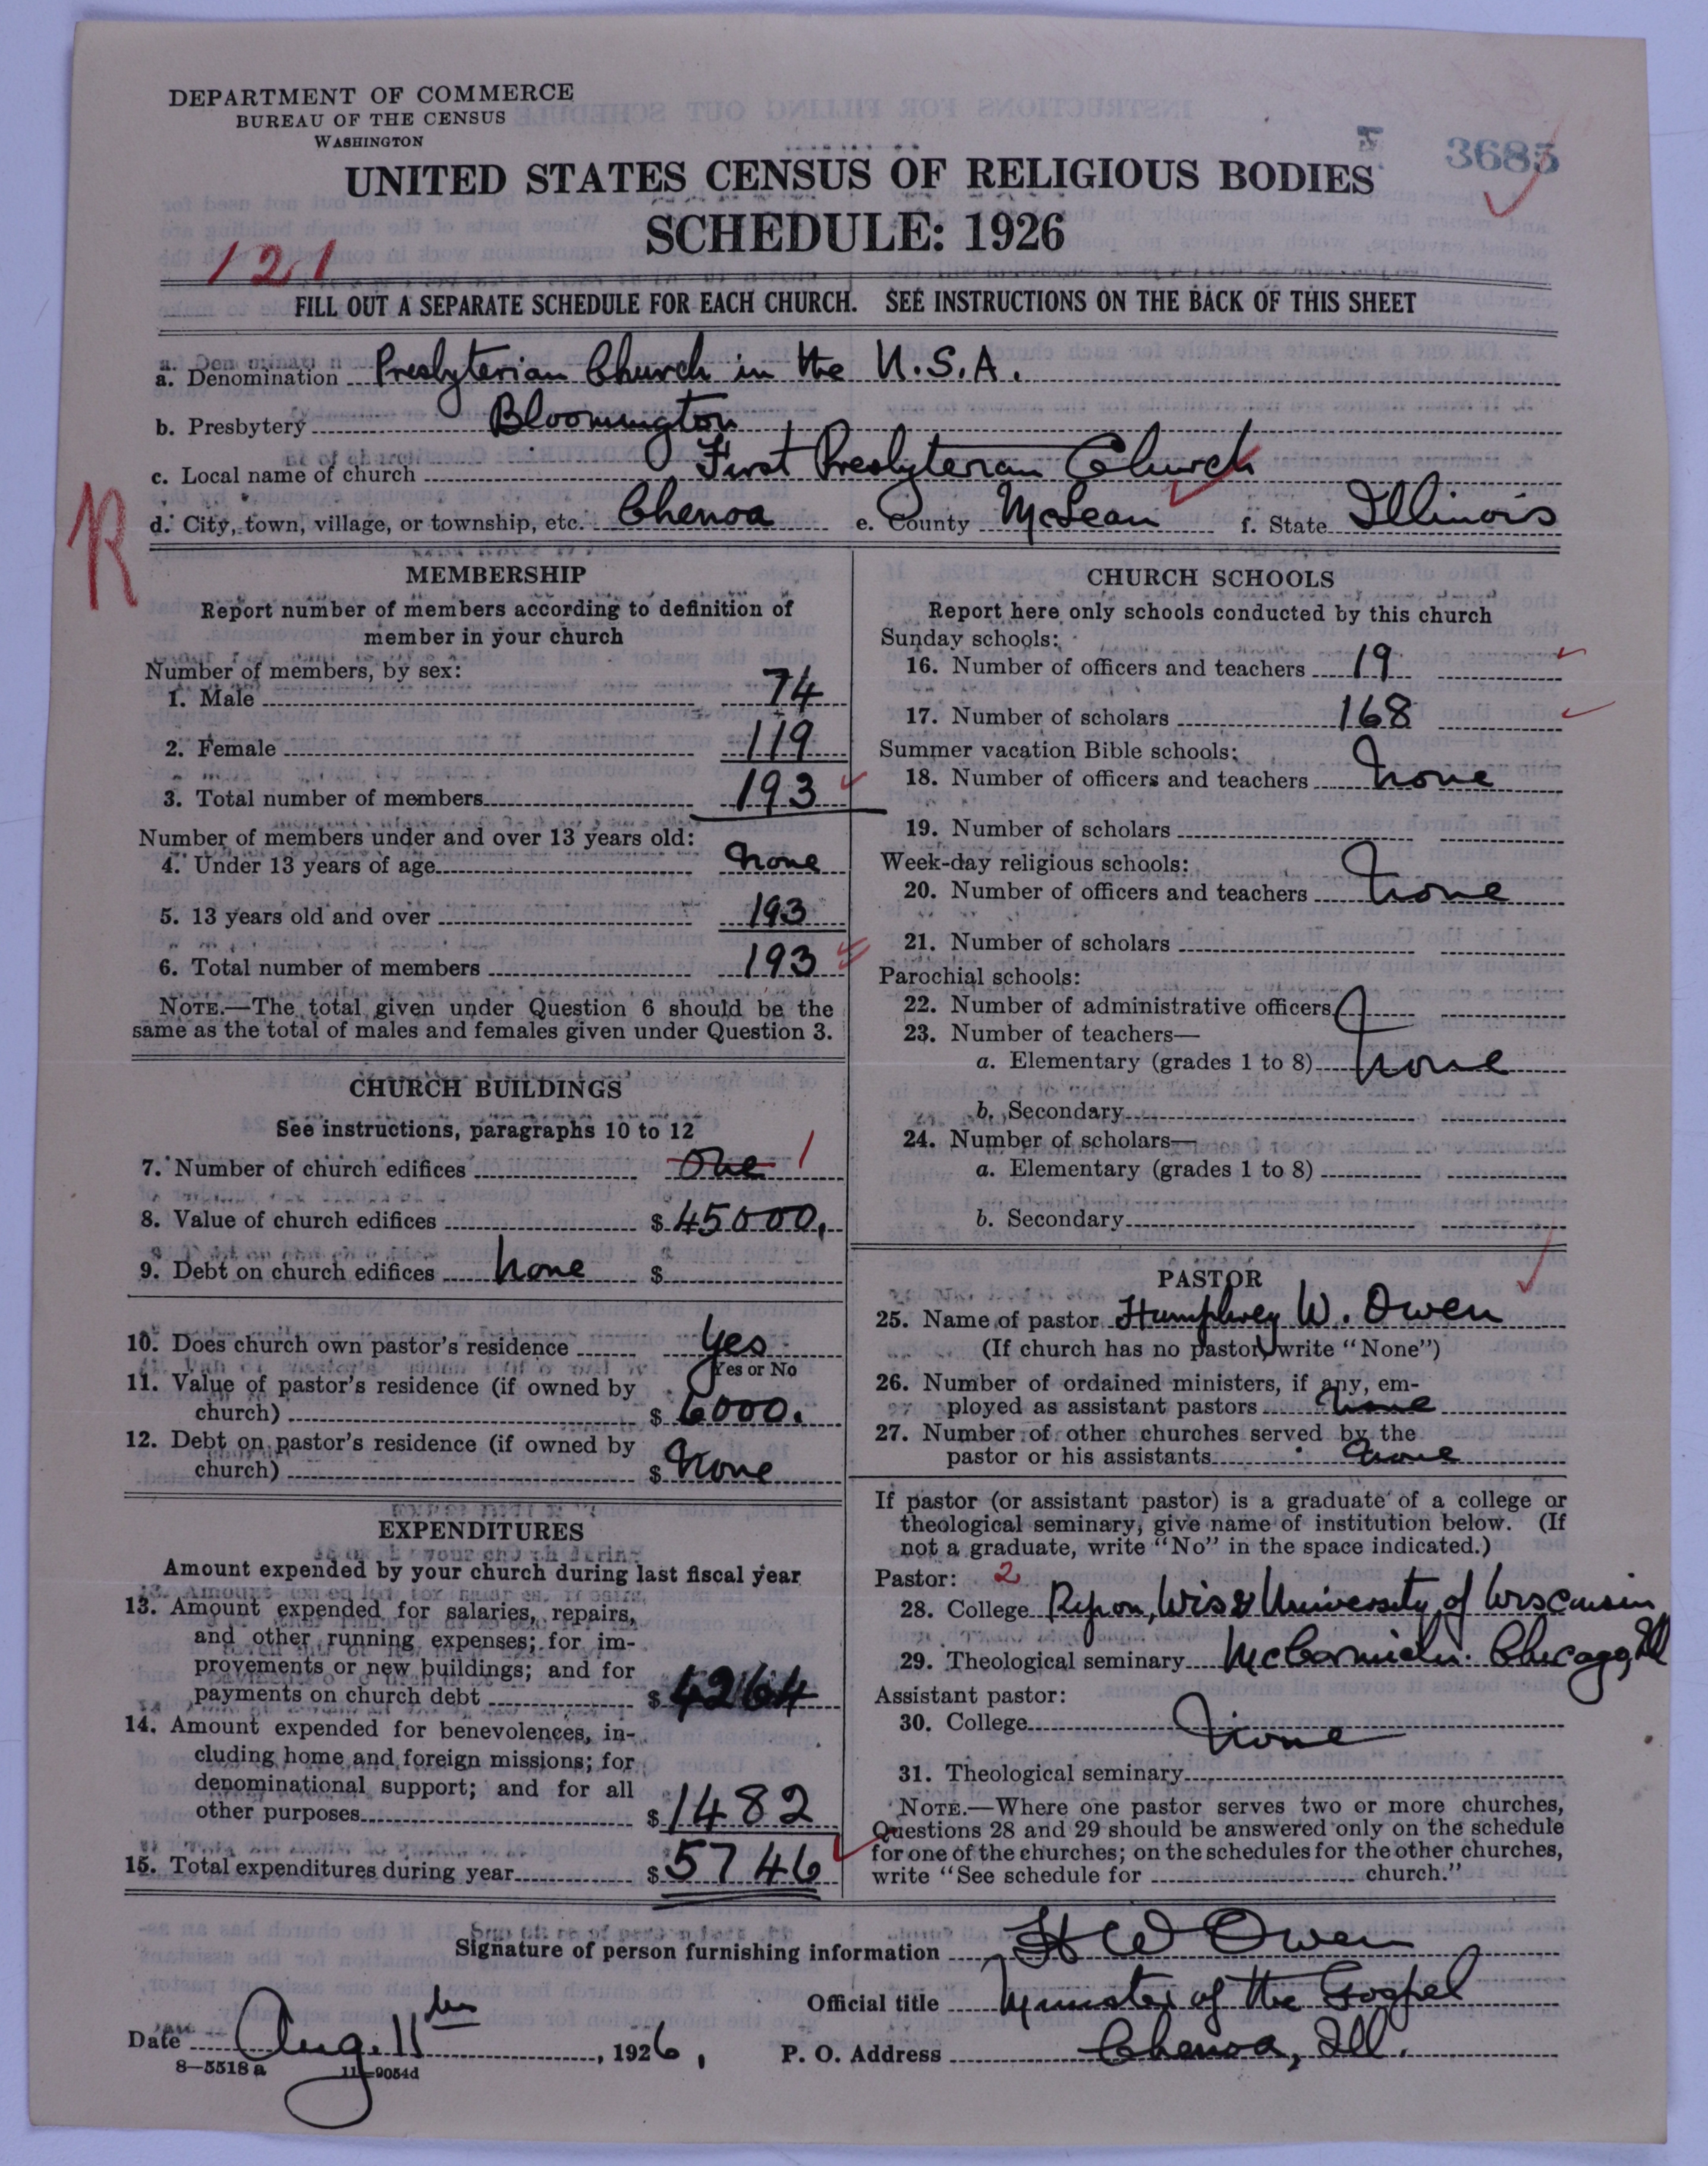 DEPARTMENT OF COMMERCE
BUREAU OF THE CENSUS
WASHINGTON
3685
UNITED STATES CENSUS OF RELIGIOUS BODIES
SCHEDULE: 1926
121
FILL OUT A SEPARATE SCHEDULE FOR EACH CHURCH. SEE INSTRUCTIONS ON THE BACK OF THIS SHEET
a. Denomination Presbyterian Church in the U.S.A.
b. Presbytery Bloomington
c. Local name of church First Presbyterian Church
d. City, town, village, or township, etc. Chenoa e. County McLean f. State Illinois
R
MEMBERSHIP
Report number of members according to definition of
member in your church
Number of members, by sex:
1. Male 74
2. Female 119
3. Total number of members 193
Number of members under and over 13 years old:
4. Under 13 years of age None
5. 13 years old and over 193
6. Total number of members 193
NOTE.—The total given under Question 6 should be the
same as the total of males and females given under Question 3.
CHURCH BUILDINGS
See instructions, paragraphs 10 to 12
7. Number of church edifices One 1
8. Value of church edifices $ 45000.
9. Debt on church edifices None $
10. Does church own pastor's residence Yes
Yes or No
11. Value of pastor's residence (if owned by
church) $ 6000.
12. Debt on pastor's residence (if owned by
church) $ None
EXPENDITURES
Amount expended by your church during last fiscal year
13. Amount expended for salaries, repairs,
and other running expenses; for im-
provements or new buildings; and for
payments on church debt $ 4264
14. Amount expended for benevolences, in-
cluding home and foreign missions; for
denominational support; and for all
other purposes $ 1482
15. Total expenditures during year $ 5746
CHURCH SCHOOLS
Report here only schools conducted by this church
Sunday schools:
16. Number of officers and teachers 19
17. Number of scholars 168
Summer vacation Bible schools:
18. Number of officers and teachers None
19. Number of scholars
Week-day religious schools:
20. Number of officers and teachers None
21. Number of scholars
Parochial schools:
22. Number of administrative officers
23. Number of teachers—
a. Elementary (grades 1 to 8) None
b. Secondary
24. Number of scholars—
a. Elementary (grades 1 to 8)
b. Secondary
PASTOR
25. Name of pastor Humphrey W. Owen
(If church has no pastor, write "None")
26. Number of ordained ministers, if any, em-
ployed as assistant pastors None
27. Number of other churches served by the
pastor or his assistants None
If pastor (or assistant pastor) is a graduate of a college or
theological seminary, give name of institution below. (If
not a graduate, write "No" in the space indicated.)
Pastor: 2
28. College Ripon, Wis & University of Wisconsin
29. Theological seminary McCormick. Chicago, Ill
Assistant pastor:
30. College None
31. Theological seminary
NOTE.—Where one pastor serves two or more churches,
Questions 28 and 29 should be answered only on the schedule
for one of the churches; on the schedules for the other churches,
write "See schedule for church."
Signature of person furnishing information H W Owen
Official title Minister of the Gospel
Date Aug. 11th, 1926, P. O. Address Chenoa, Ill.
8—5518a 11—9054d